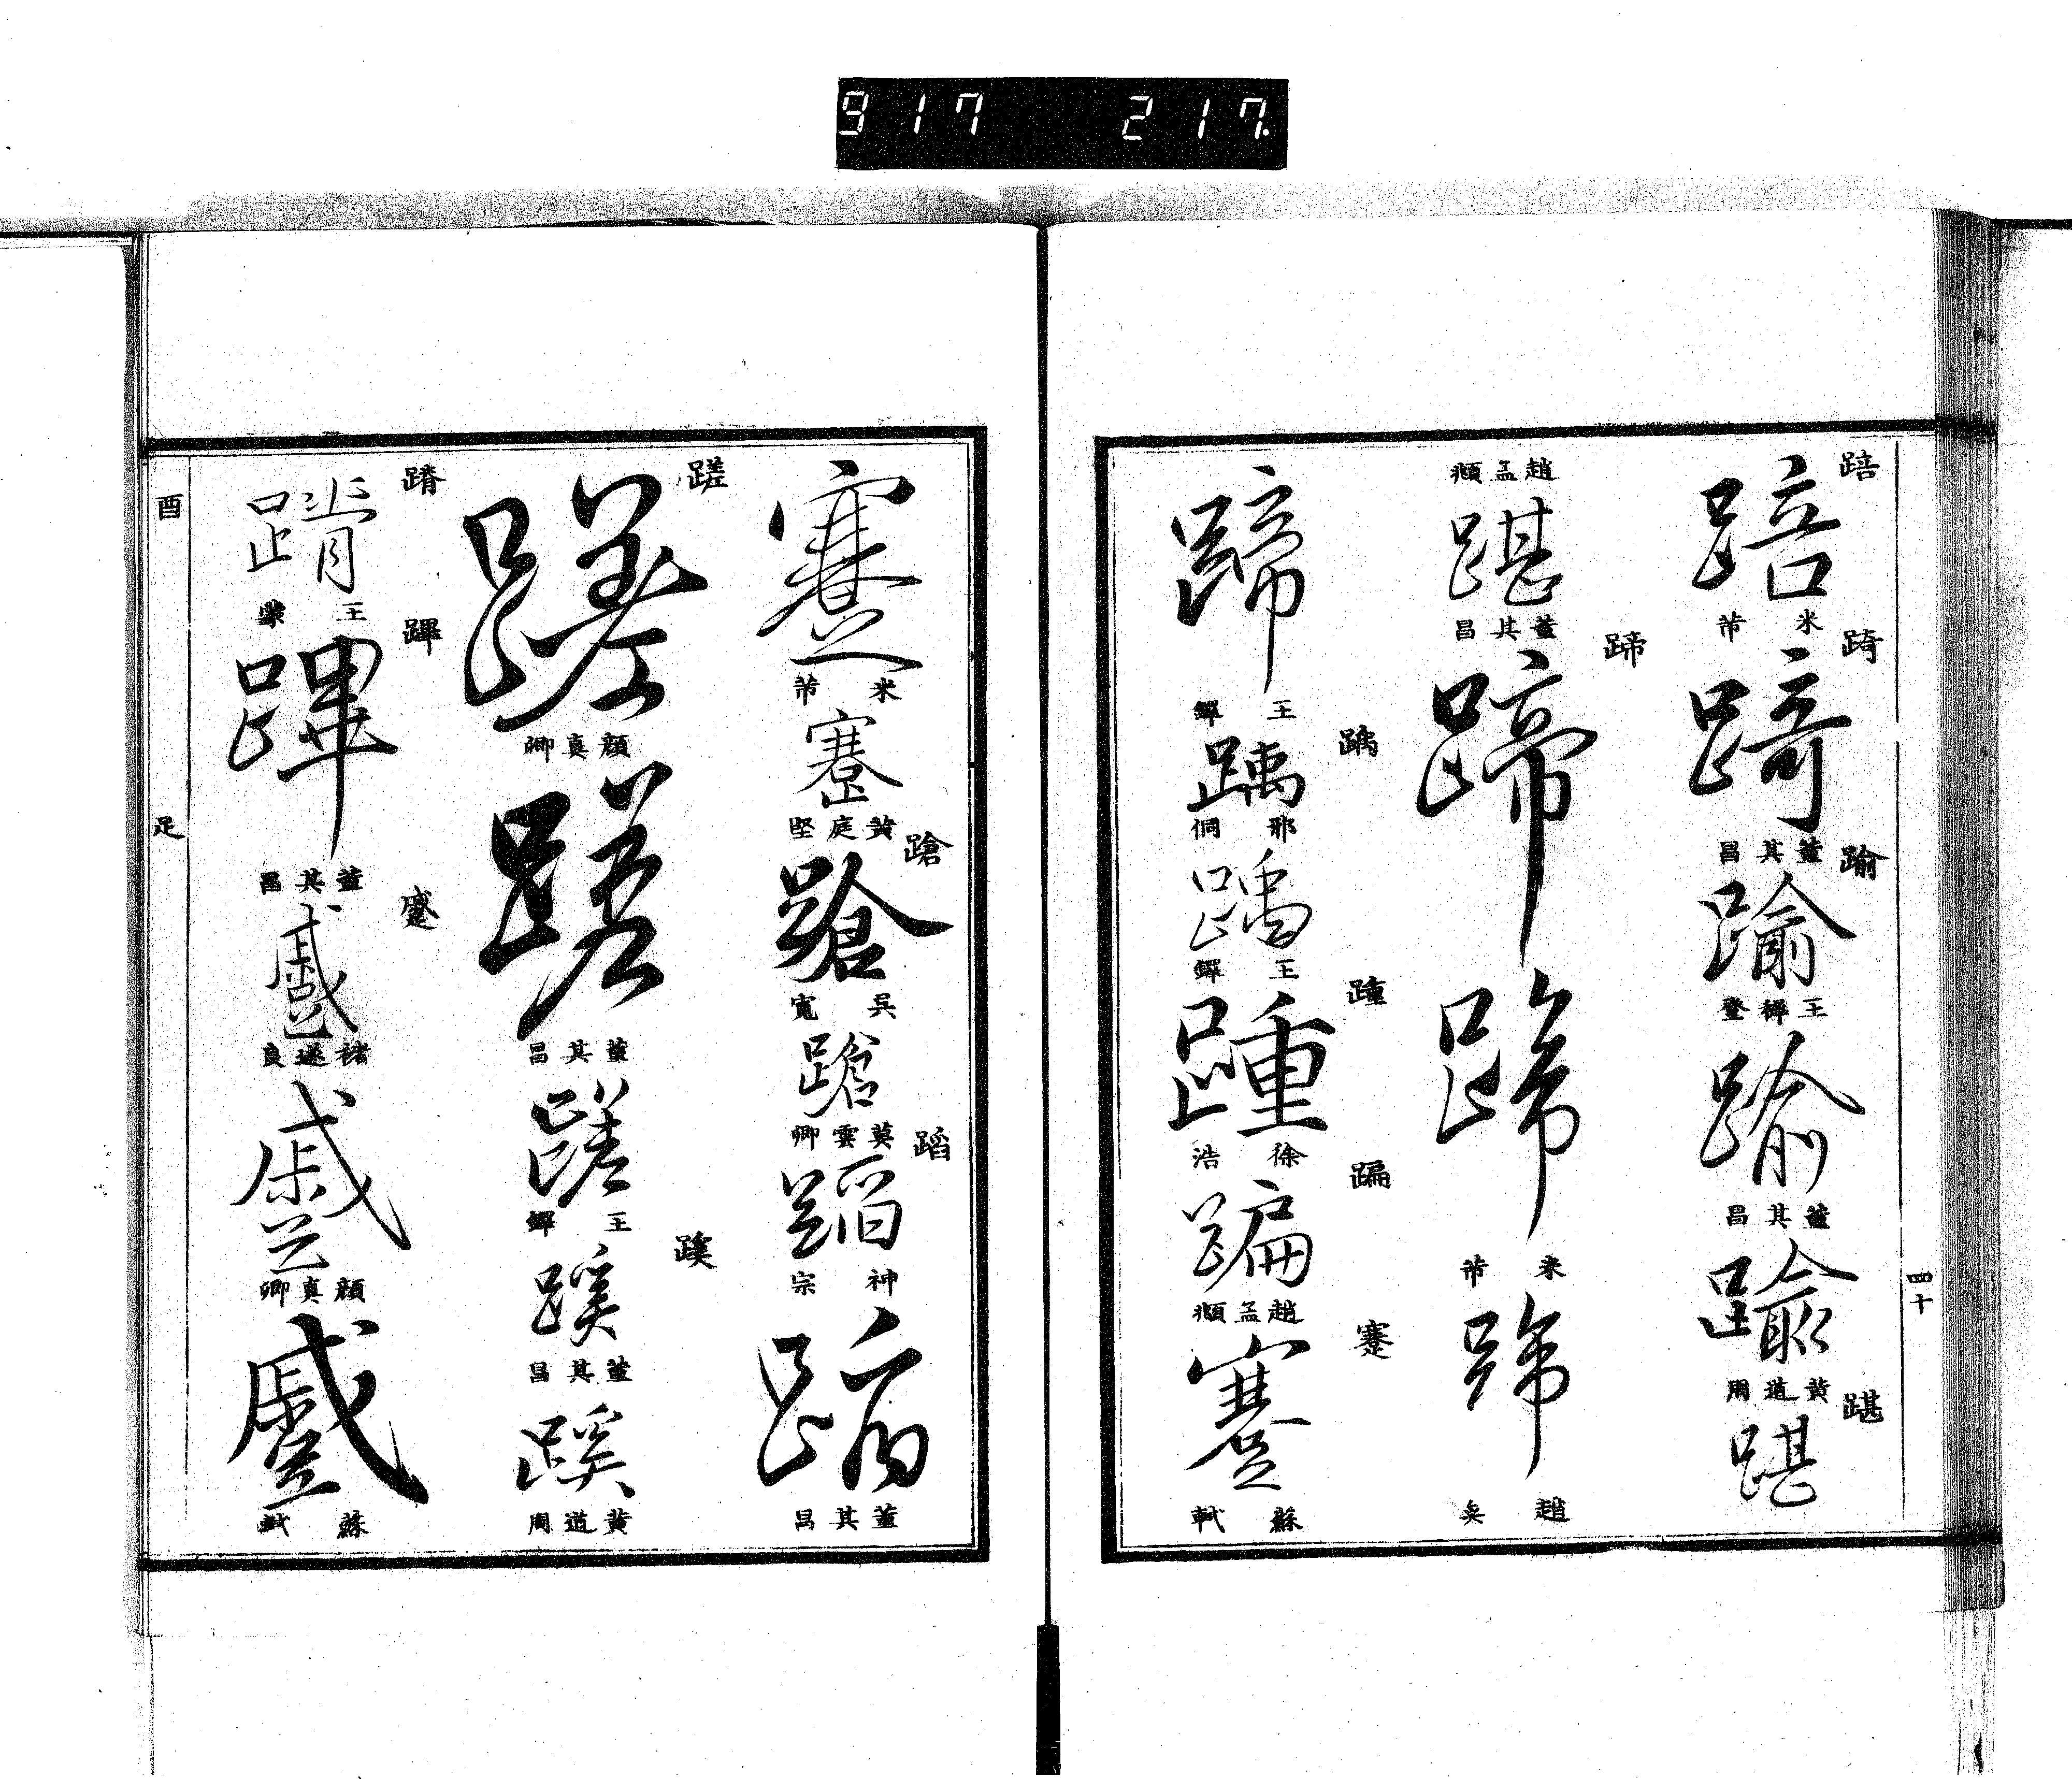 917 217.
四十
踣
踣
米芾
踦
踦
董其昌
踰
踰
王穉登
踰
董其昌
踰
黄道周
踸
踸
趙孟頫
踸
董其昌
蹄
蹄
蹄
米芾
蹄
趙
蹄
王鐸
踽
踽
邢侗
踽
王鐸
踵
踵
徐浩
蹁
蹁
趙孟頫
蹇
蹇
蘇軾
蹇
米芾
蹇
黄庭堅
蹌
蹌
吳寬
蹌
莫雲卿
蹈
蹈
神宗
蹈
董其昌
蹉
蹉
顔真卿
蹉
董其昌
蹉
王鐸
蹊
蹊
董其昌
蹊
黄道周
蹐
蹐
王蒙
蹕
蹕
董其昌
蹙
蹙
褚遂良
蹙
顔真卿
蹙
蘇軾
酉
足